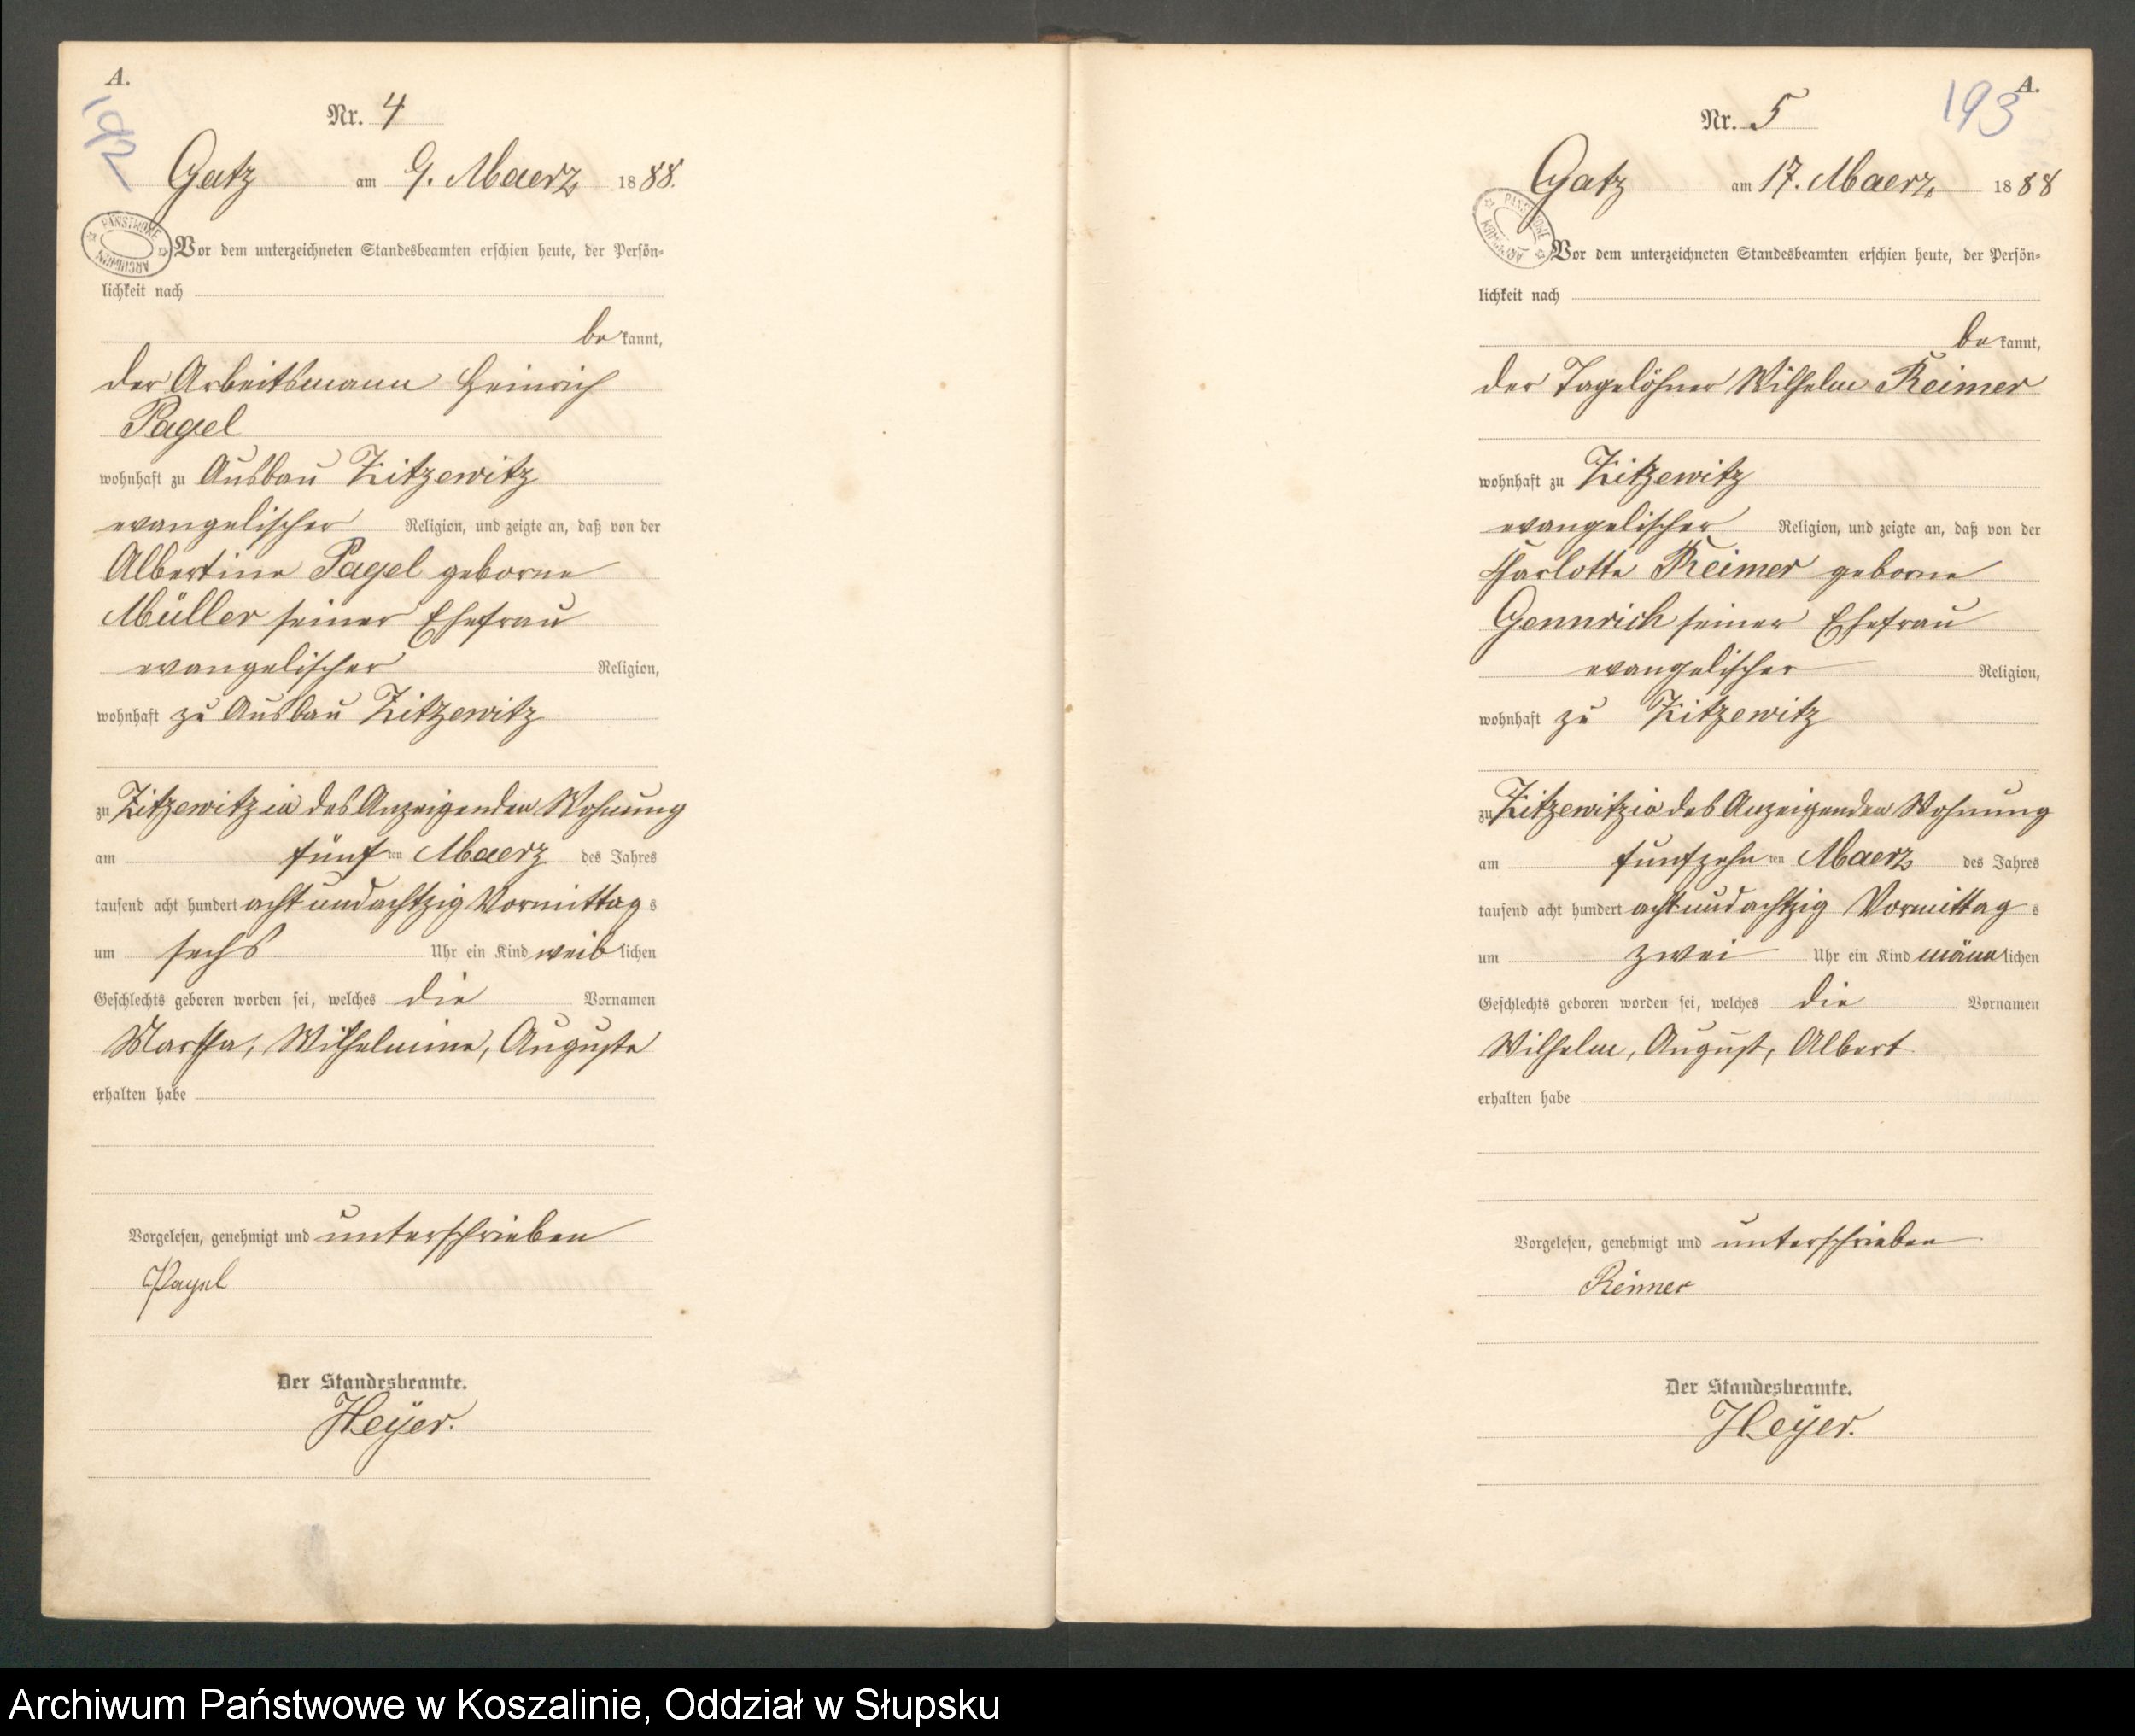 A.
192
Nr. 4
Gatz am 9. Maerz 1888.
PAŃSTWOWE ARCHIWUM
Vor dem unterzeichneten Standesbeamten erschien heute, der Persön-
lichkeit nach
bekannt,
der Arbeitsmann Heinrich
Pagel
wohnhaft zu Ausbau Zitzewitz
evangelischer Religion, und zeigte an, daß von der
Albertine Pagel geborne
Müller seiner Ehefrau
evangelischer Religion,
wohnhaft zu Ausbau Zitzewitz
zu Zitzewitz in des Anzeigenden Wohnung
am fünften Maerz des Jahres
tausend acht hundert acht und achtzig Vormittags
um sechs Uhr ein Kind weiblichen
Geschlechts geboren worden sei, welches die Vornamen
Martha, Wilhelmine, Auguste
erhalten habe
Vorgelesen, genehmigt und unterschrieben
Pagel
Der Standesbeamte.
Heyer.
A.
193
Nr. 5
Gatz am 17. Maerz 1888
PAŃSTWOWE ARCHIWUM
Vor dem unterzeichneten Standesbeamten erschien heute, der Persön-
lichkeit nach
bekannt,
der Tagelöhner Wilhelm Reimer
wohnhaft zu Zitzewitz
evangelischer Religion, und zeigte an, daß von der
Charlotte Reimer geborne
Gennrich seiner Ehefrau
evangelischer Religion,
wohnhaft zu Zitzewitz
zu Zitzewitz in des Anzeigenden Wohnung
am funfzehnten Maerz des Jahres
tausend acht hundert acht und achtzig Vormittags
um zwei Uhr ein Kind männlichen
Geschlechts geboren worden sei, welches die Vornamen
Wilhelm, August, Albert
erhalten habe
Vorgelesen, genehmigt und unterschrieben
Reimer
Der Standesbeamte.
Heyer.
Archiwum Państwowe w Koszalinie, Oddział w Słupsku